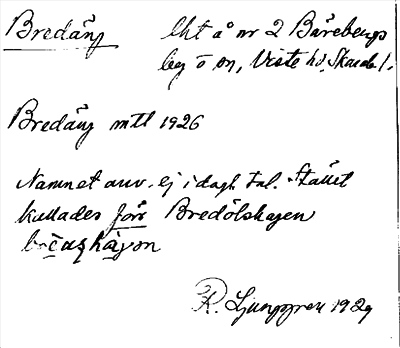 Bredäng
Lht å nr 2 Bärebergs
by o sn, Viste hd, Skarab. l.
Bredäng mtl 1926
Namnet anv. ej i dagl. tal. Stället
kallades förr Bredölshagen
R. Ljunggren 1929